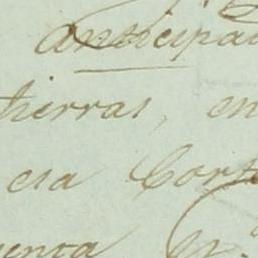 anticipad
tierras, en
esa Cort
uenta